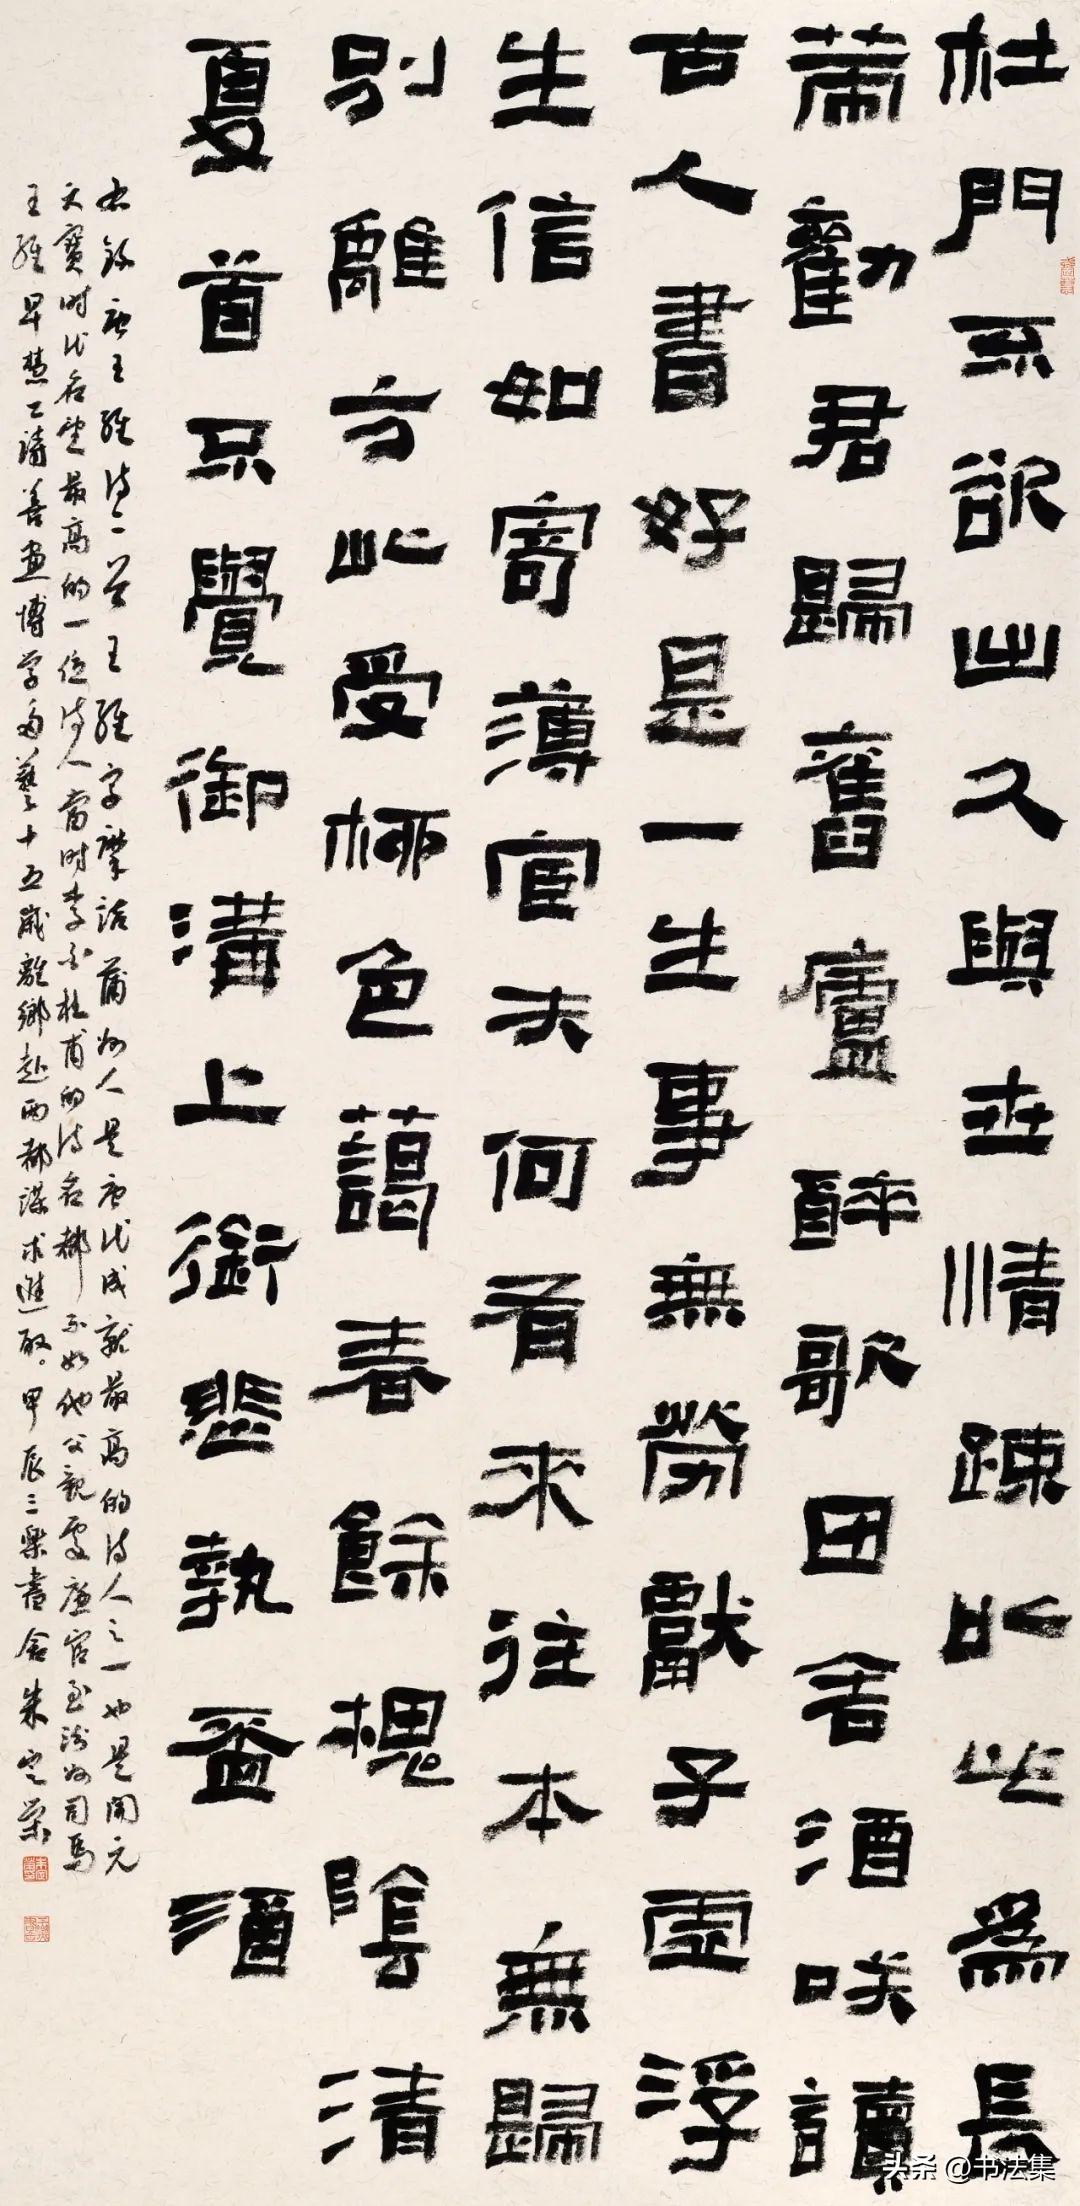 杜門不欲出久與世情疎以此為長
策勸君歸舊廬醉歌田舍酒咲讀
古人書好是一生事無勞獻子虛浮
生信如寄薄宦夫何有來往本無歸
別離方此受柳色藹春餘槐陰清
夏首不覺御溝上銜悲執盃酒
右錄唐王維詩二首王維字摩詰蒲州人是唐代成就最高的詩人之一也是開元
天寶時代名望最高的一位詩人當時李白杜甫的詩名都不如他父親處廉官至汾州司馬
王維早慧工詩善畫博學多藝十五歲離鄉赴兩都謀求進取。甲辰三樂書舍朱定榮
头条 @书法集